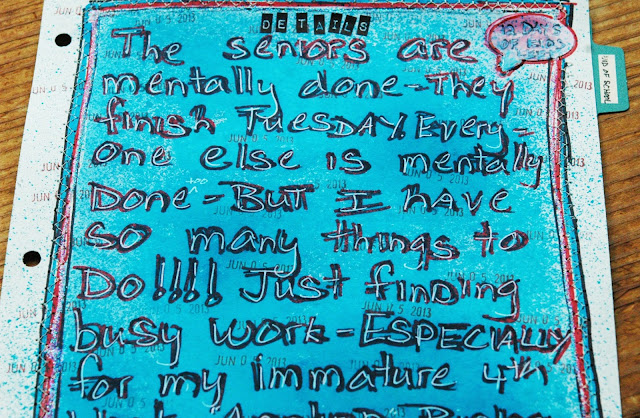 DETAILS
The seniors are
mentally done - They
finish TUESDAY. Every-
one else is mentally
too
Done - BUT I HAVE
so many things to
Do!!!! Just finding
busy work - ESPECIALLY
for my immature 4th
12 DAYS
OF KIDS
END OF SCHOOL
JUN 05 2013